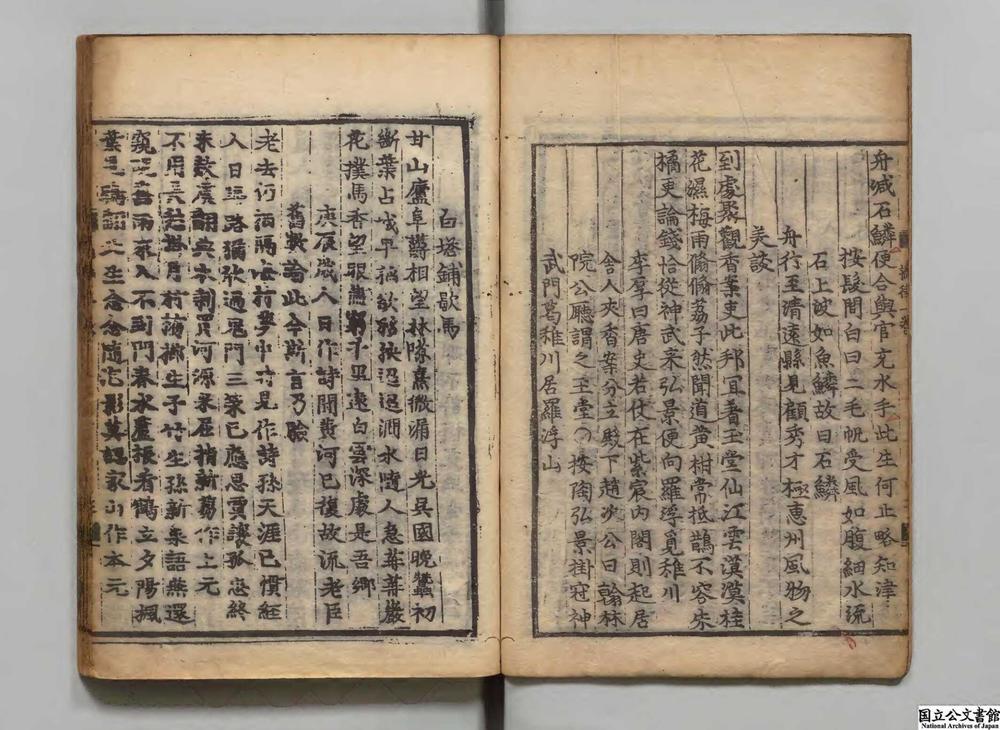 舟碱石鱗便合與官充水手此生何止略知津
按髮間白曰二毛帆受風如腹細水流
石上皮如魚鱗故曰石鱗
舟行至清遠縣見顧秀才極惠州風物之
美談
到處聚觀香案吏此邦宜着玉堂仙江雲漠漠桂
花濕梅雨翛翛荔子然聞道黄柑常抵鵲不容朱
橘更論錢恰從神武来弘景便向羅浮覓稚川
李肇曰唐史若仗在紫宸内閣則起居
舍人夾香案分立殿下趙次公曰翰林
院公廳謂之玉堂〇按陶弘景掛冠神
武門葛稚川居羅浮山
白塔鋪歇馬
甘山廬阜鬱相望林隙熹微漏日光吳國晚蠶初
斷葉占城早稻欲移秧迢迢澗水隨人急冉冉巖
花撲馬香望眼盡窮千里遠白雲深處是吾鄉
庚辰歲人日作詩聞黄河已復故流老臣
舊數論此今斯言乃驗
老去仍栖隔海村夢中時見作詩孫天涯已慣經
人日歸路猶欣過鬼門三策已應思賈讓孤忠終
未赦虞翻典衣剰買河源米屈指新蒭作上元
不用長愁掛月村檳榔生子竹生孫新巢語燕還
窺硯舊雨来人不到門春水蘆根看鶴立夕陽楓
葉見鴉翻此生念念隨泡影莫認家山作本元
国立公文書館
National Archives of Japan